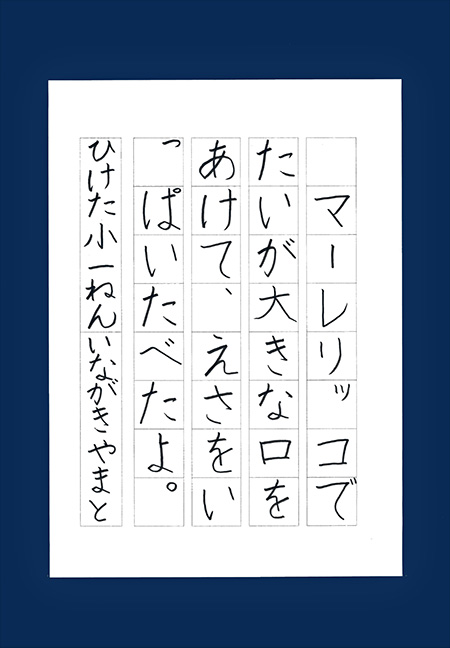 マーレリッコで
たいが大きな口を
あけて、えさをい
っぱいたべたよ。
ひけた小一ねんいながきやまと